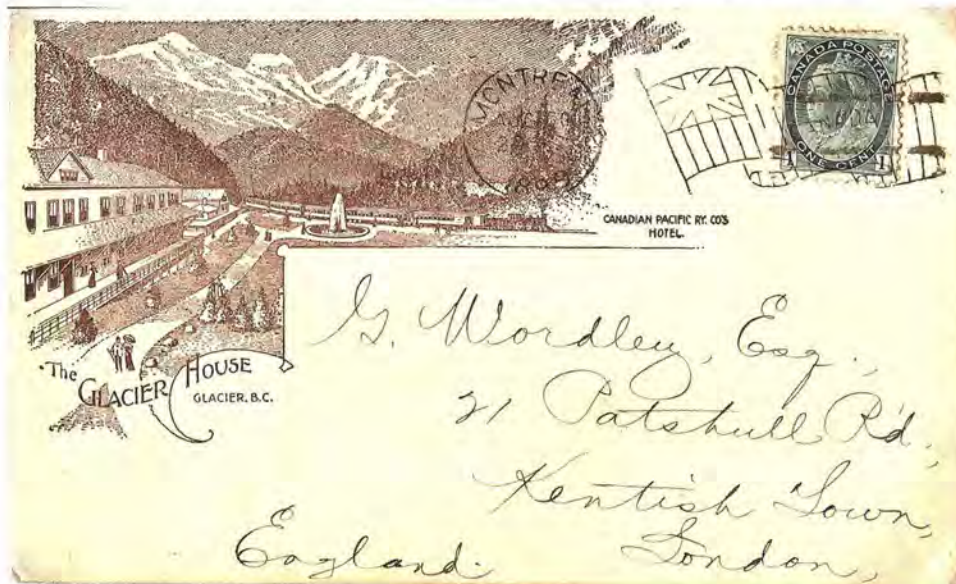 CANADA POSTAGE
ONE CENT
1 1
MONTREAL
CANADIAN PACIFIC RY. CO'S
HOTEL.
The GLACIER HOUSE
GLACIER, B.C.
G. Wordley, Esq.,
21 Patshull Rd,
Kentish Town,
London,
England.